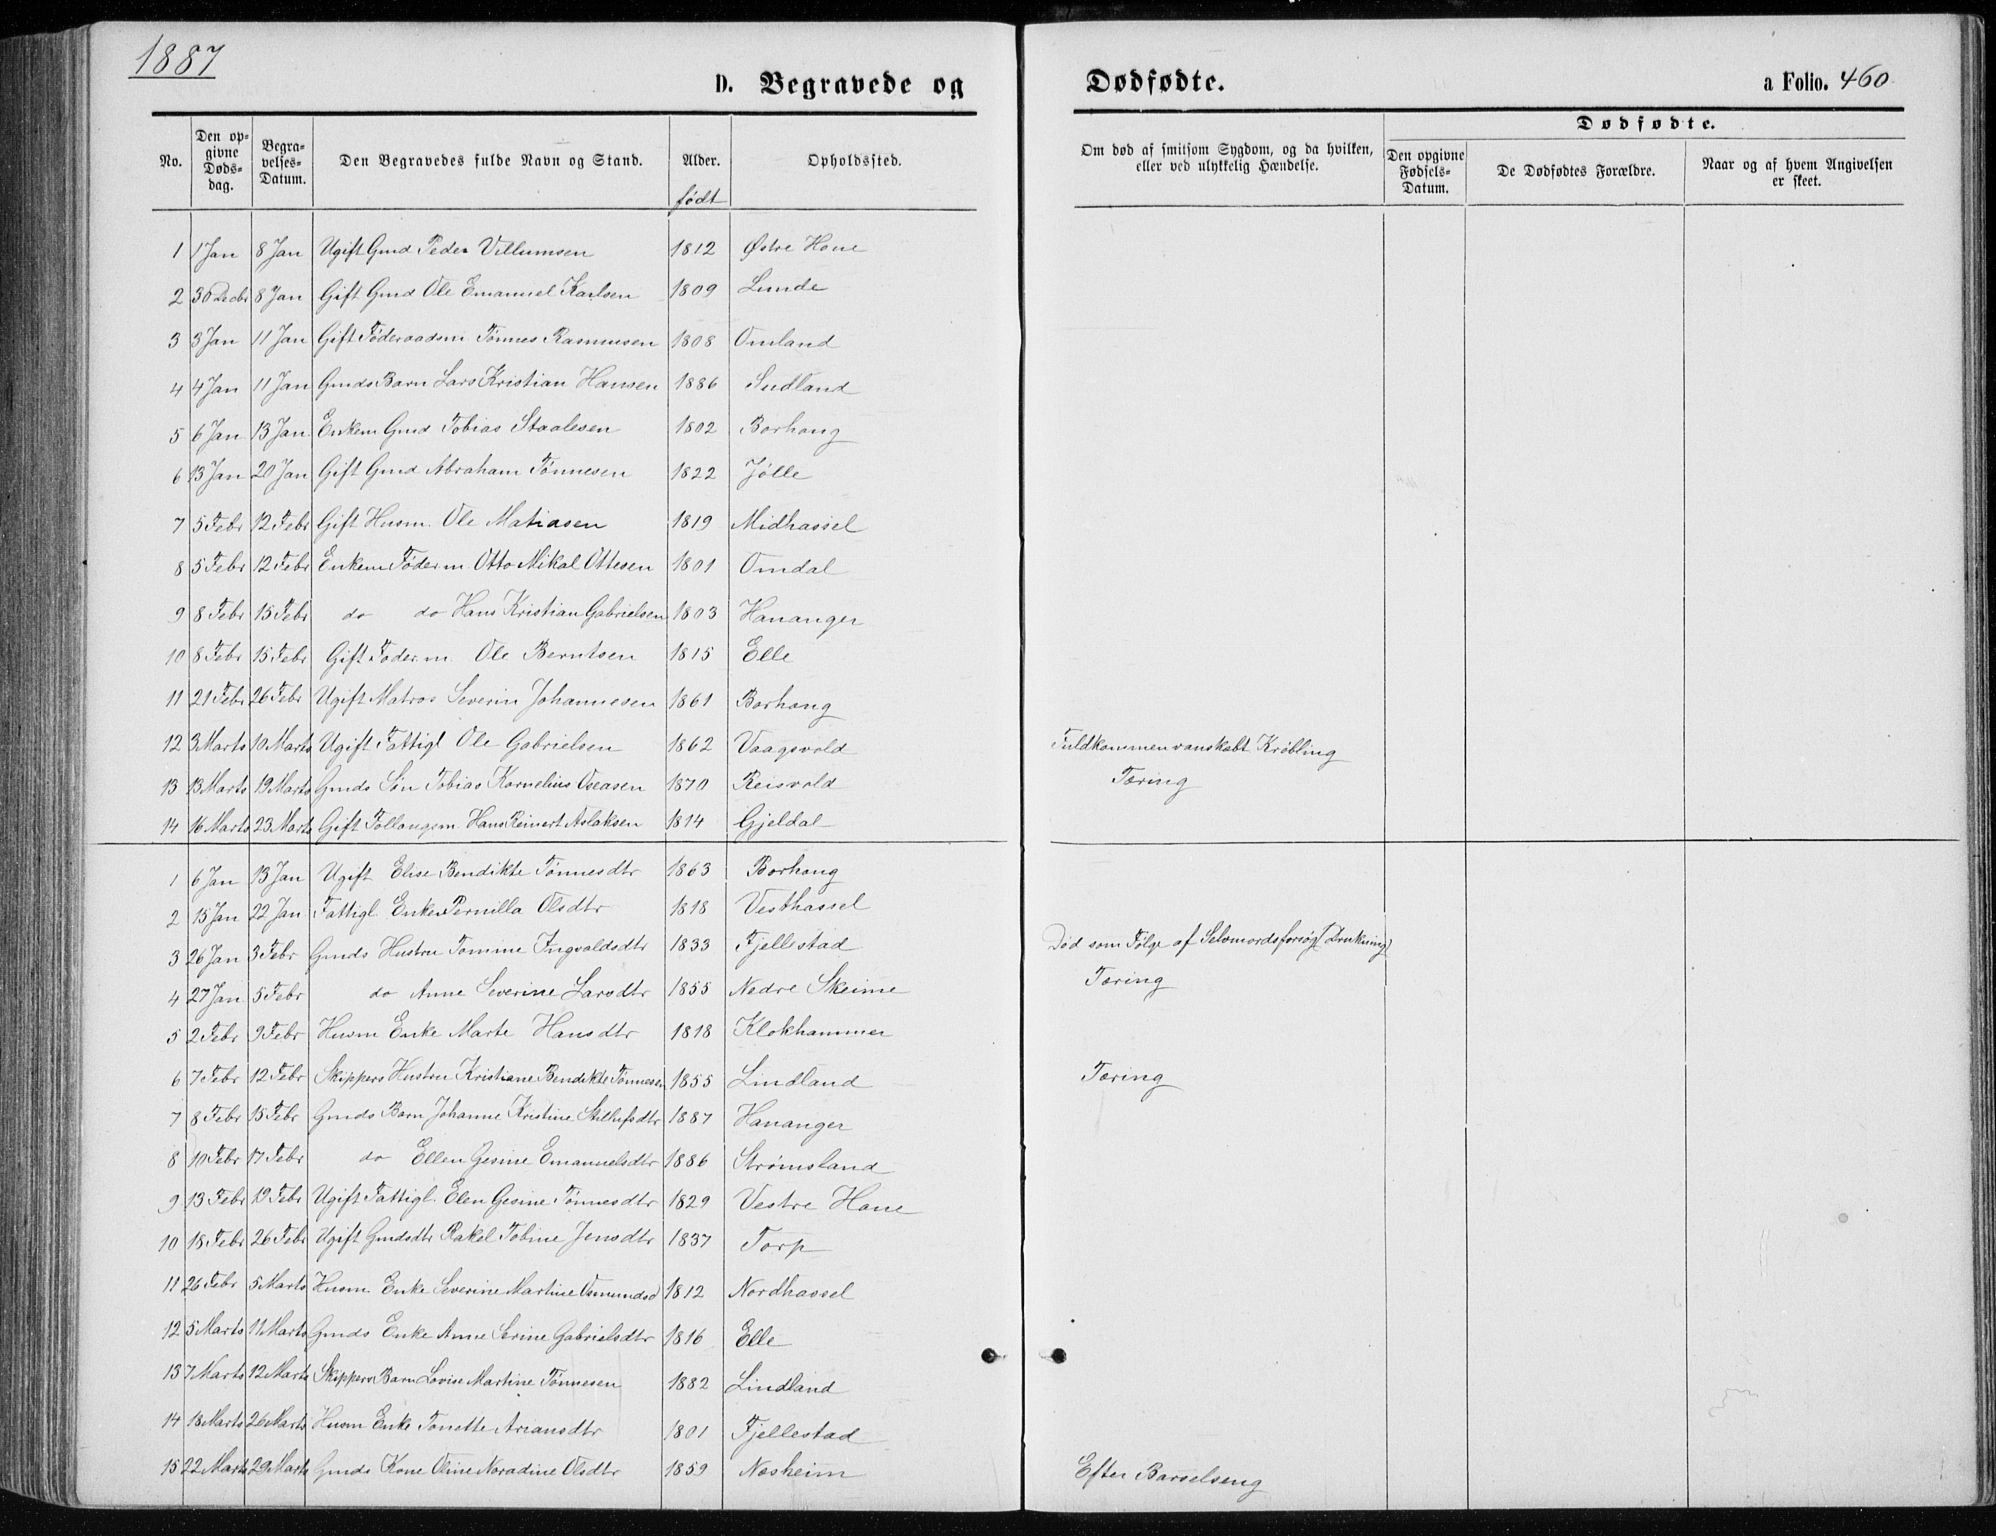 1887
D. Begravede og Dødfødte. a Folio. 460
No. | Den opgivne Dødsdag. | Begravelses-Datum. | Den Begravedes fulde Navn og Stand. | Alder. født | Opholdssted. | Om død af smitsom Sygdom, og da hvilken, eller ved ulykkelig Hændelse. | Dødfødte. | Den opgivne Fødsels-Datum. | De Dødfødtes Forældre. | Naar og af hvem Angivelsen er skeet.
1 | 1 Jan | 8 Jan | Ugift Gmd Peder Villumsen | 1812 | Østre Haue
2 | 30 Decbr | 8 Jan | Gift Gmd Ole Emanuel Karlsen | 1809 | Lunde
3 | 3 Jan | 11 Jan | Gift Føderaadsm Tønnes Rasmusen | 1808 | Omland
4 | 4 Jan | 11 Jan | Gmds Barn Lars Kristian Hansen | 1886 | Sudland
5 | 6 Jan | 13 Jan | Enkem Gmd Tobias Staalesen | 1802 | Borhaug
6 | 13 Jan | 20 Jan | Gift Gmd Abraham Tønnesen | 1822 | Jølle
7 | 5 Febr | 12 Febr | Gift Husm. Ole Matiasen | 1819 | Midhassel
8 | 5 Febr | 12 Febr | Enkem Føder m. Otto Mikal Ottesen | 1801 | Omdal
9 | 8 Febr | 15 Febr | do do Hans Kristian Gabrielsen | 1803 | Hananger
10 | 8 Febr | 15 Febr | Gift Føder. m. Ole Berntsen | 1815 | Elle
11 | 21 Febr | 26 Febr | Ugift Matros Severin Johannesen | 1861 | Borhaug
12 | 3 Marts | 10 Marts | Ugift Fattigl Ole Gabrielsen | 1862 | Vaagsvold | Fuldkommen vanskabt Krøbling
13 | 13 Marts | 19 Marts | Gmds Søn Tobias Kornelius Oseasen | 1870 | Reisvold | Tæring
14 | 16 Marts | 23 Marts | Gift Follaugsm. Hans Reinert Aslaksen | 1814 | Gjeldal
1 | 6 Jan | 13 Jan | Ugift Elise Bendikte Tønnesdtr | 1863 | Borhaug
2 | 15 Jan | 22 Jan | Fattigl. Enke Pernilla Olsdtr | 1818 | Vesthassel
3 | 26 Jan | 3 Febr | Gmds Hustru Tomine Ingvaldsdtr | 1833 | Fjellestad | Død som Følge af Selvmordsforsøg (Drukning)
4 | 27 Jan | 5 Febr | do Anne Severine Larsdtr | 1855 | Nedre Skeime | Tæring
5 | 2 Febr | 9 Febr | Husm Enke Marte Hansdtr | 1818 | Klokhammer
6 | 7 Febr | 12 Febr | Skippers Hustru Kristiane Bendikte Tønnesen | 1855 | Lindland | Tæring
7 | 8 Febr | 15 Febr | Gmds Barn Johanne Kristine Stillufsdtr | 1887 | Hananger
8 | 10 Febr | 17 Febr | do Ellen Gesine Emanuelsdtr | 1886 | Strømsland
9 | 13 Febr | 19 Febr | Ugift Fattigl. Elen Gesine Tønnesdtr | 1829 | Vestre Haue
10 | 18 Febr | 26 Febr | Ugift Gmdsdtr Rakel Tobine Jensdtr | 1837 | Torp
11 | 26 Febr | 5 Marts | Husm Enke Severine Martine Osmundsd | 1812 | Nordhassel
12 | 5 Marts | 11 Marts | Gmds Enke Anne Serine Gabrielsdtr | 1816 | Elle
13 | 7 Marts | 12 Marts | Skippers Barn Lovise Martine Tønnesen | 1882 | Lindland
14 | 18 Marts | 26 Marts | Husm Enke Tonette Ariansdtr | 1801 | Fjellestad
15 | 22 Marts | 29 Marts | Gmds Kone Oline Noradine Olsdtr | 1859 | Næsheim | Efter Barselseng